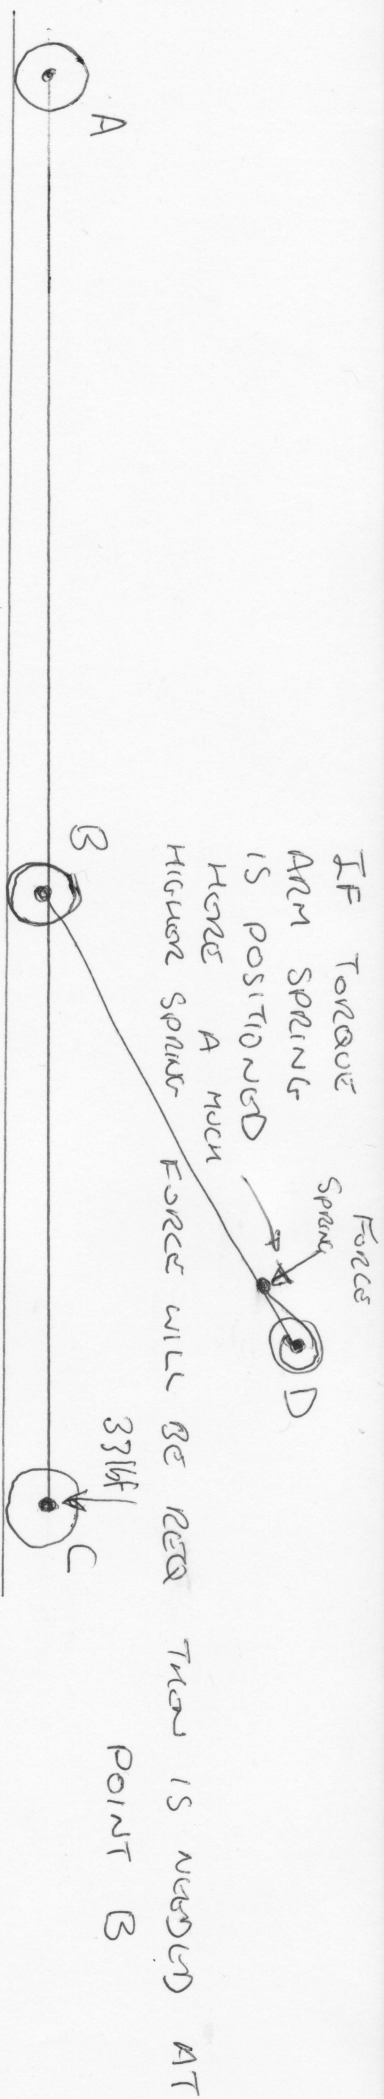 A
B
IF TORQUE
ARM SPRING
IS POSITIONED
HERE A MUCH
HIGHER SPRING FORCE WILL BE REQ THEN IS NEEDED AT
POINT B
FORCE
SPRING
D
33lbf
C